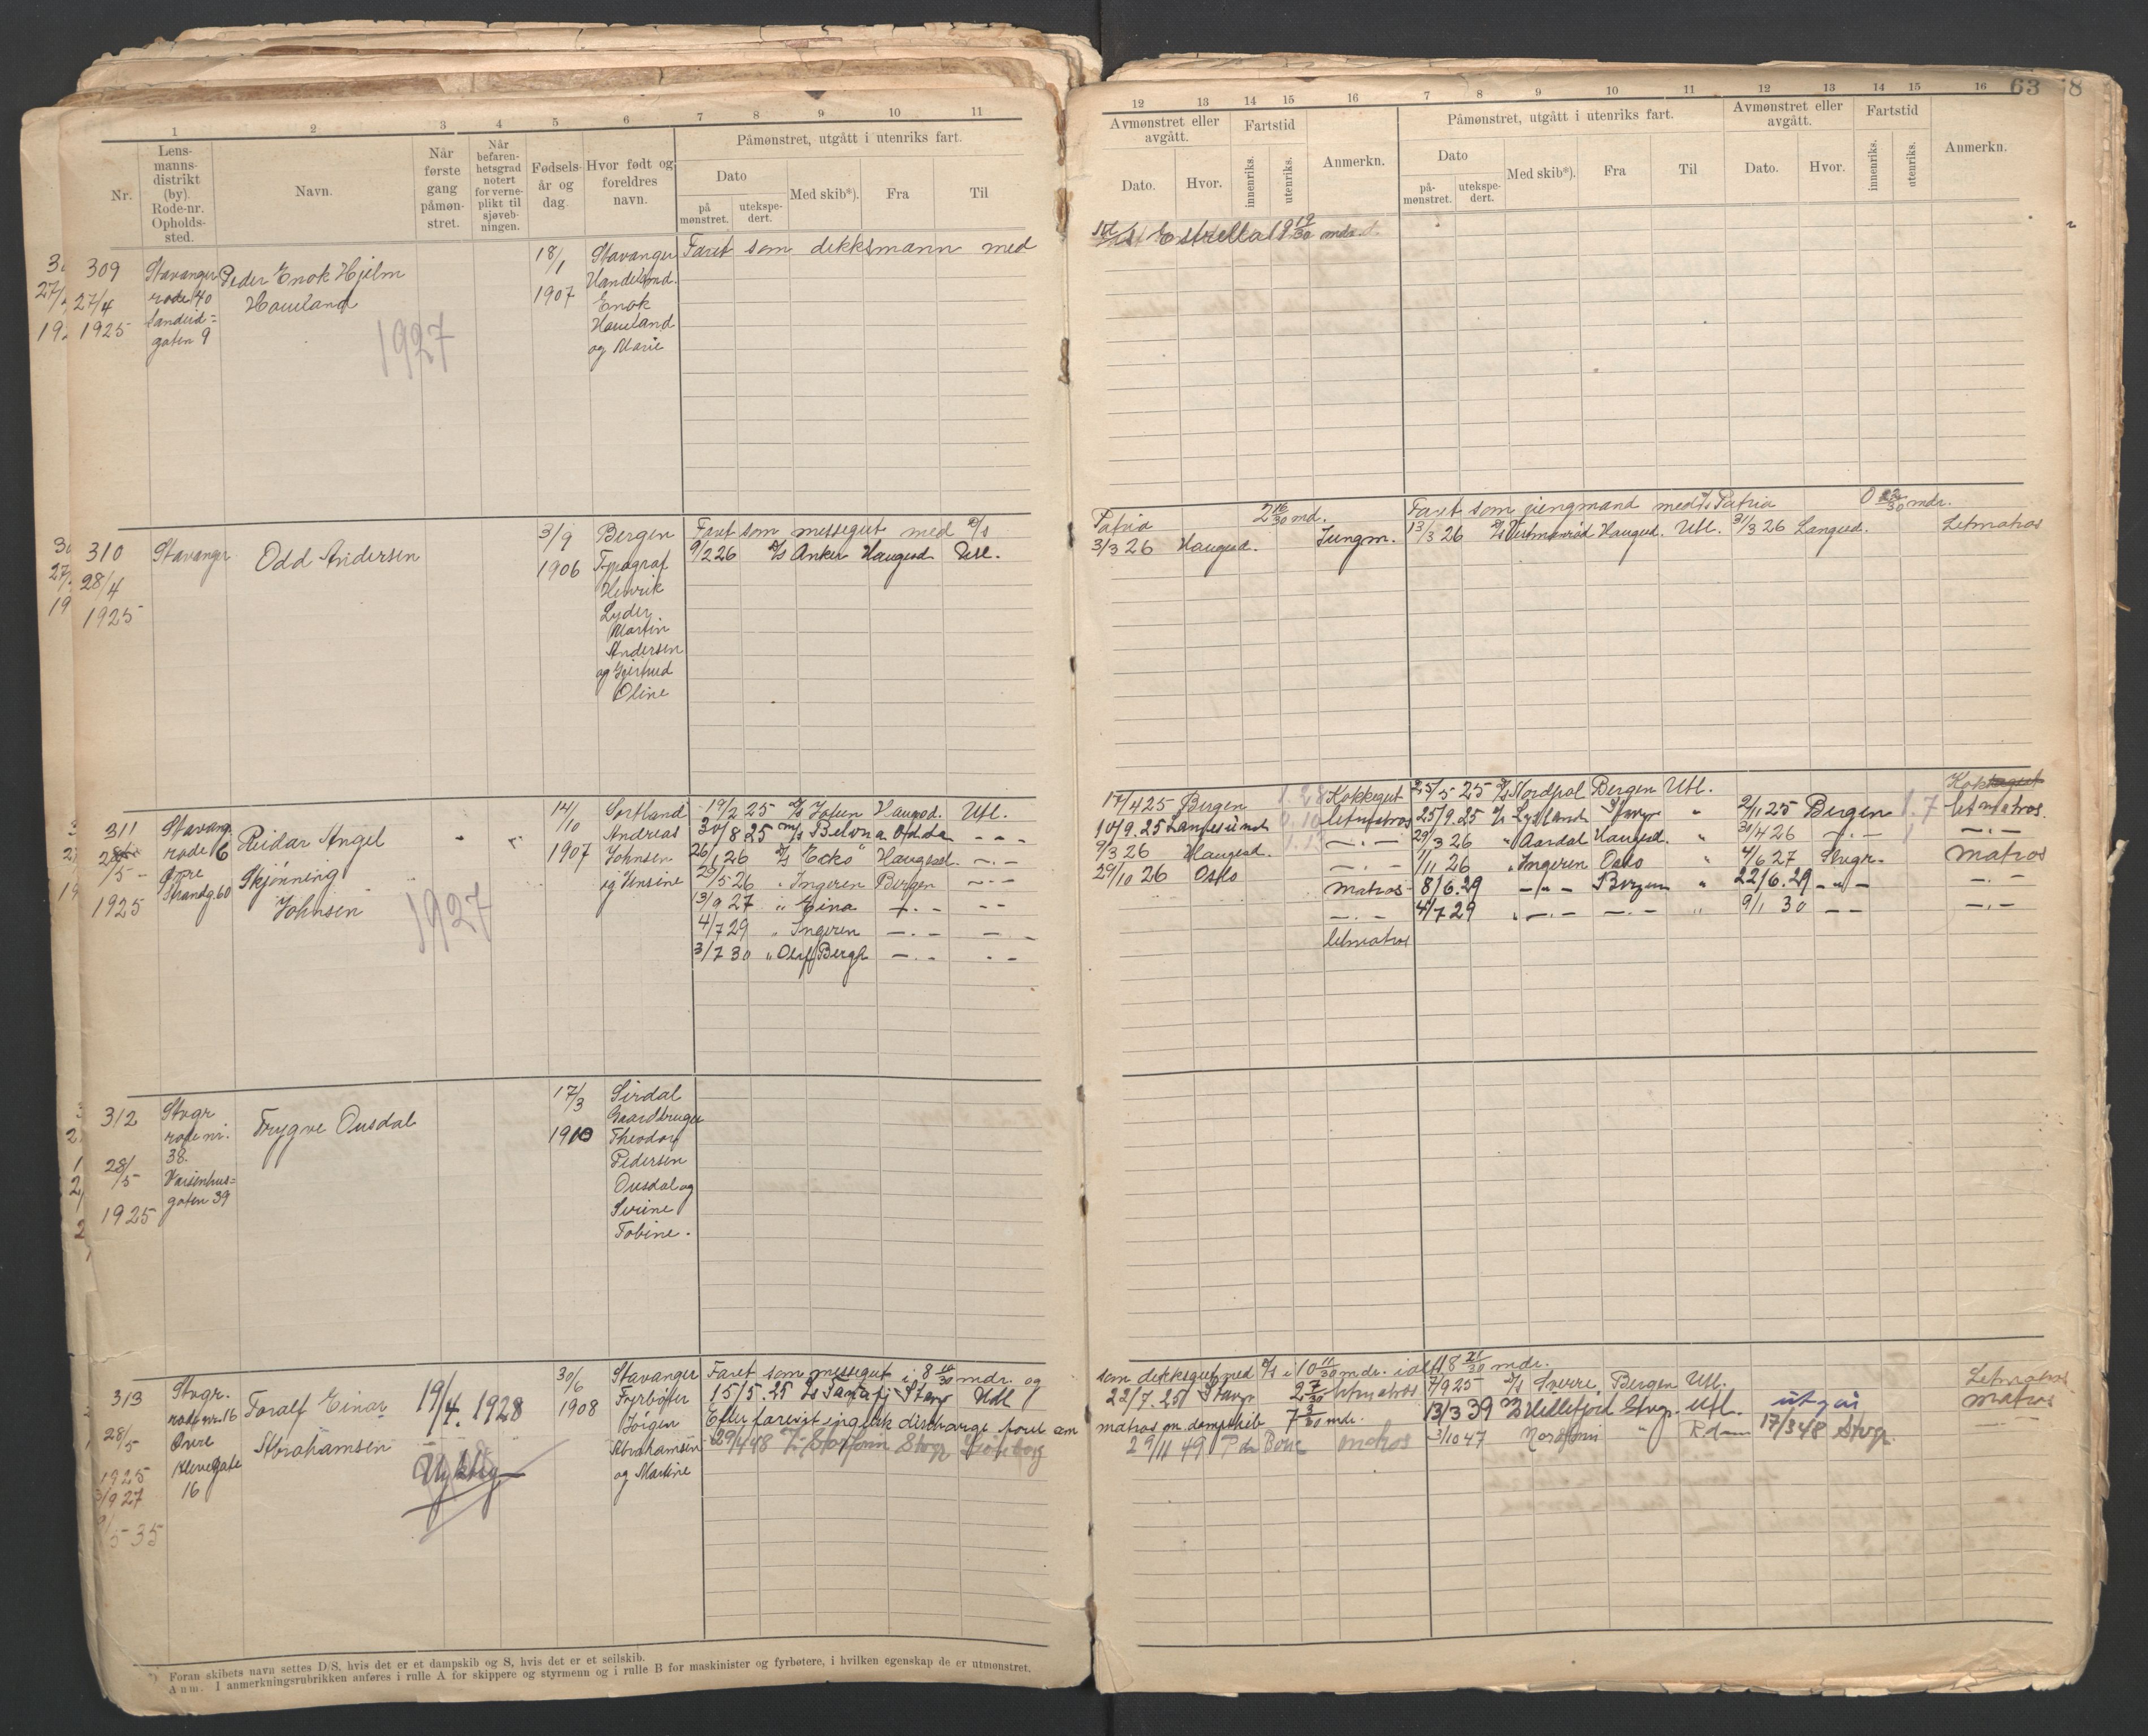 1 2 3 4 5 6 7 8 9 10 11
Nr.
Lens-
manns-
distrikt
(by).
Rode-nr.
Opholds-
sted.
Navn.
Når
første
gang
påmøn-
stret.
Når
befaren-
hetsgrad
notert
for verne-
plikt til
sjøveb-
ningen.
Fødsels-
år og
dag.
Hvor født og
foreldres
navn.
Påmønstret, utgått i utenriks fart.
Dato
på
mønstret.
utekspe-
dert.
Med skib*).
Fra
Til
309
27/4
1925
Stavanger
rode 40
Sandeid=
gaten 9
Peder Enok Hjelm
Haueland
1927
18/1
1907
Stavanger
Handelsmd.
Enok
Haueland
og Marie
Faret som dekksmann med
310
28/4
1925
Stavanger
Odd Andersen
3/9
1906
Bergen
Typograf
Henrik
Lyder
Martin
Andersen
og Gjertrud
Oline
Faret som messegut med D/s
9/2 26 D/s Anker Haugesd Utl.
311
28/5 -
1925
Stavang.
rode 6
Øvre
Strandg. 60
Reidar Angel
Skjønning
Johnsen
1927
14/10
1907
Sortland
Andreas
Johnsen
og Jensine
19/2 25 D/s Jotun Haugesd. Utl.
30/8 25 M/s Belona Odda - " -
26/1 26 D/s "Ecko" Haugesd. - " -
29/5 26 " Ingeren Bergen - " -
3/9 27 " Eina - " - - " -
4/7 29 " Ingeren - " - -
3/7 30 " Olaf Bergh - " - " -
312
28/5
1925
Stvgr
rode nr.
38.
Vaisenhus=
gaten 39
Trygve Ousdal
17/3
1910
Sirdal
Gaardbruger
Theodor
Pedersen
Ousdal og
Sirine
Tobine.
313
28/5
1925
3/9 27
/5 35
Stvgr.
rode nr. 16
Øvre
Klevegate
16
Toralf Einar
Abrahamsen
19/4. 1928
Dyktig
30/6
1908
Stavanger
Fyrbøter
Jørgen
Abrahamsen
og Martine
Faret som messegut i 8 10/30 mdr. og
15/5. 25 D/s Stavgr Utl
Efter forevist engelsk discharge faret som
29/4 48 Stvgr Gøteborg
*) Foran skibets navn settes D/S, hvis det er et dampskib og S, hvis det er et seilskib.
Anm. I anmerkningsrubrikken anføres i rulle A for skippere og styrmenn og i rulle B for maskinister og fyrbøtere, i hvilken egenskap de er utmønstret.
63 8
12 13 14 15 16 7 8 9 10 11 12 13 14 15 16
Avmønstret eller
avgått.
Fartstid
Dato.
Hvor.
innenriks.
utenriks.
Anmerkn.
Påmønstret, utgått i utenriks fart.
Dato
på-
mønstret.
utekspe-
dert.
Med skib*).
Fra
Til
Avmønstret eller
avgått.
Dato.
Hvor.
Fartstid
innenriks.
utenriks.
Anmerkn.
Estrella 19 19/30 mdr.
Patria 2 16/30 md. Faret som jungmand med D/s Patria 0 22/30 mdr.
3/3 26 Haugesd. Jungm. 13/3 26 D/s Haugesd. Utl. 31/3 26 Langesd. Letmatros
17/4 25 Bergen 1.28 Kokkegut 25/5 25 D/s Nordpol Bergen Utl. Kokkegut
10/9. 25 Langesund 0.10 letmatros 25/9. 25 D/s Lysland Stavgr " 2/11 25 Bergen 1.7 letmatros.
9/3 26 Haugesd. - " - 29/3 26 " Aardal Haugesd. " 30/4 26 - " - - " -
29/10 26 Oslo - " - 7/11 26 " Ingeren Oslo " 4/6 27 Stvgr. Matros
Matros 8/6. 29 - " - Bergen " 22/6. 29 - " - - " -
- " - 4/7 29 " - " - - " - " 9/1 30 - - - " -
letmatros
som dekksgut med D/s i 10 11/30 mdr. ialt 18 21/30 mdr.
22/7. 25 Stavgr 2 7/30 letmatros 7/9 25 D/s Sverre, Bergen Utl. Letmatros
matros på dampskib 7 3/30 mdr. 13/3 39 Stvgr. Utl. utgår Matros
29/11 49 matros 3/10 47 " Rdam 17/3 48 Stvgr. —